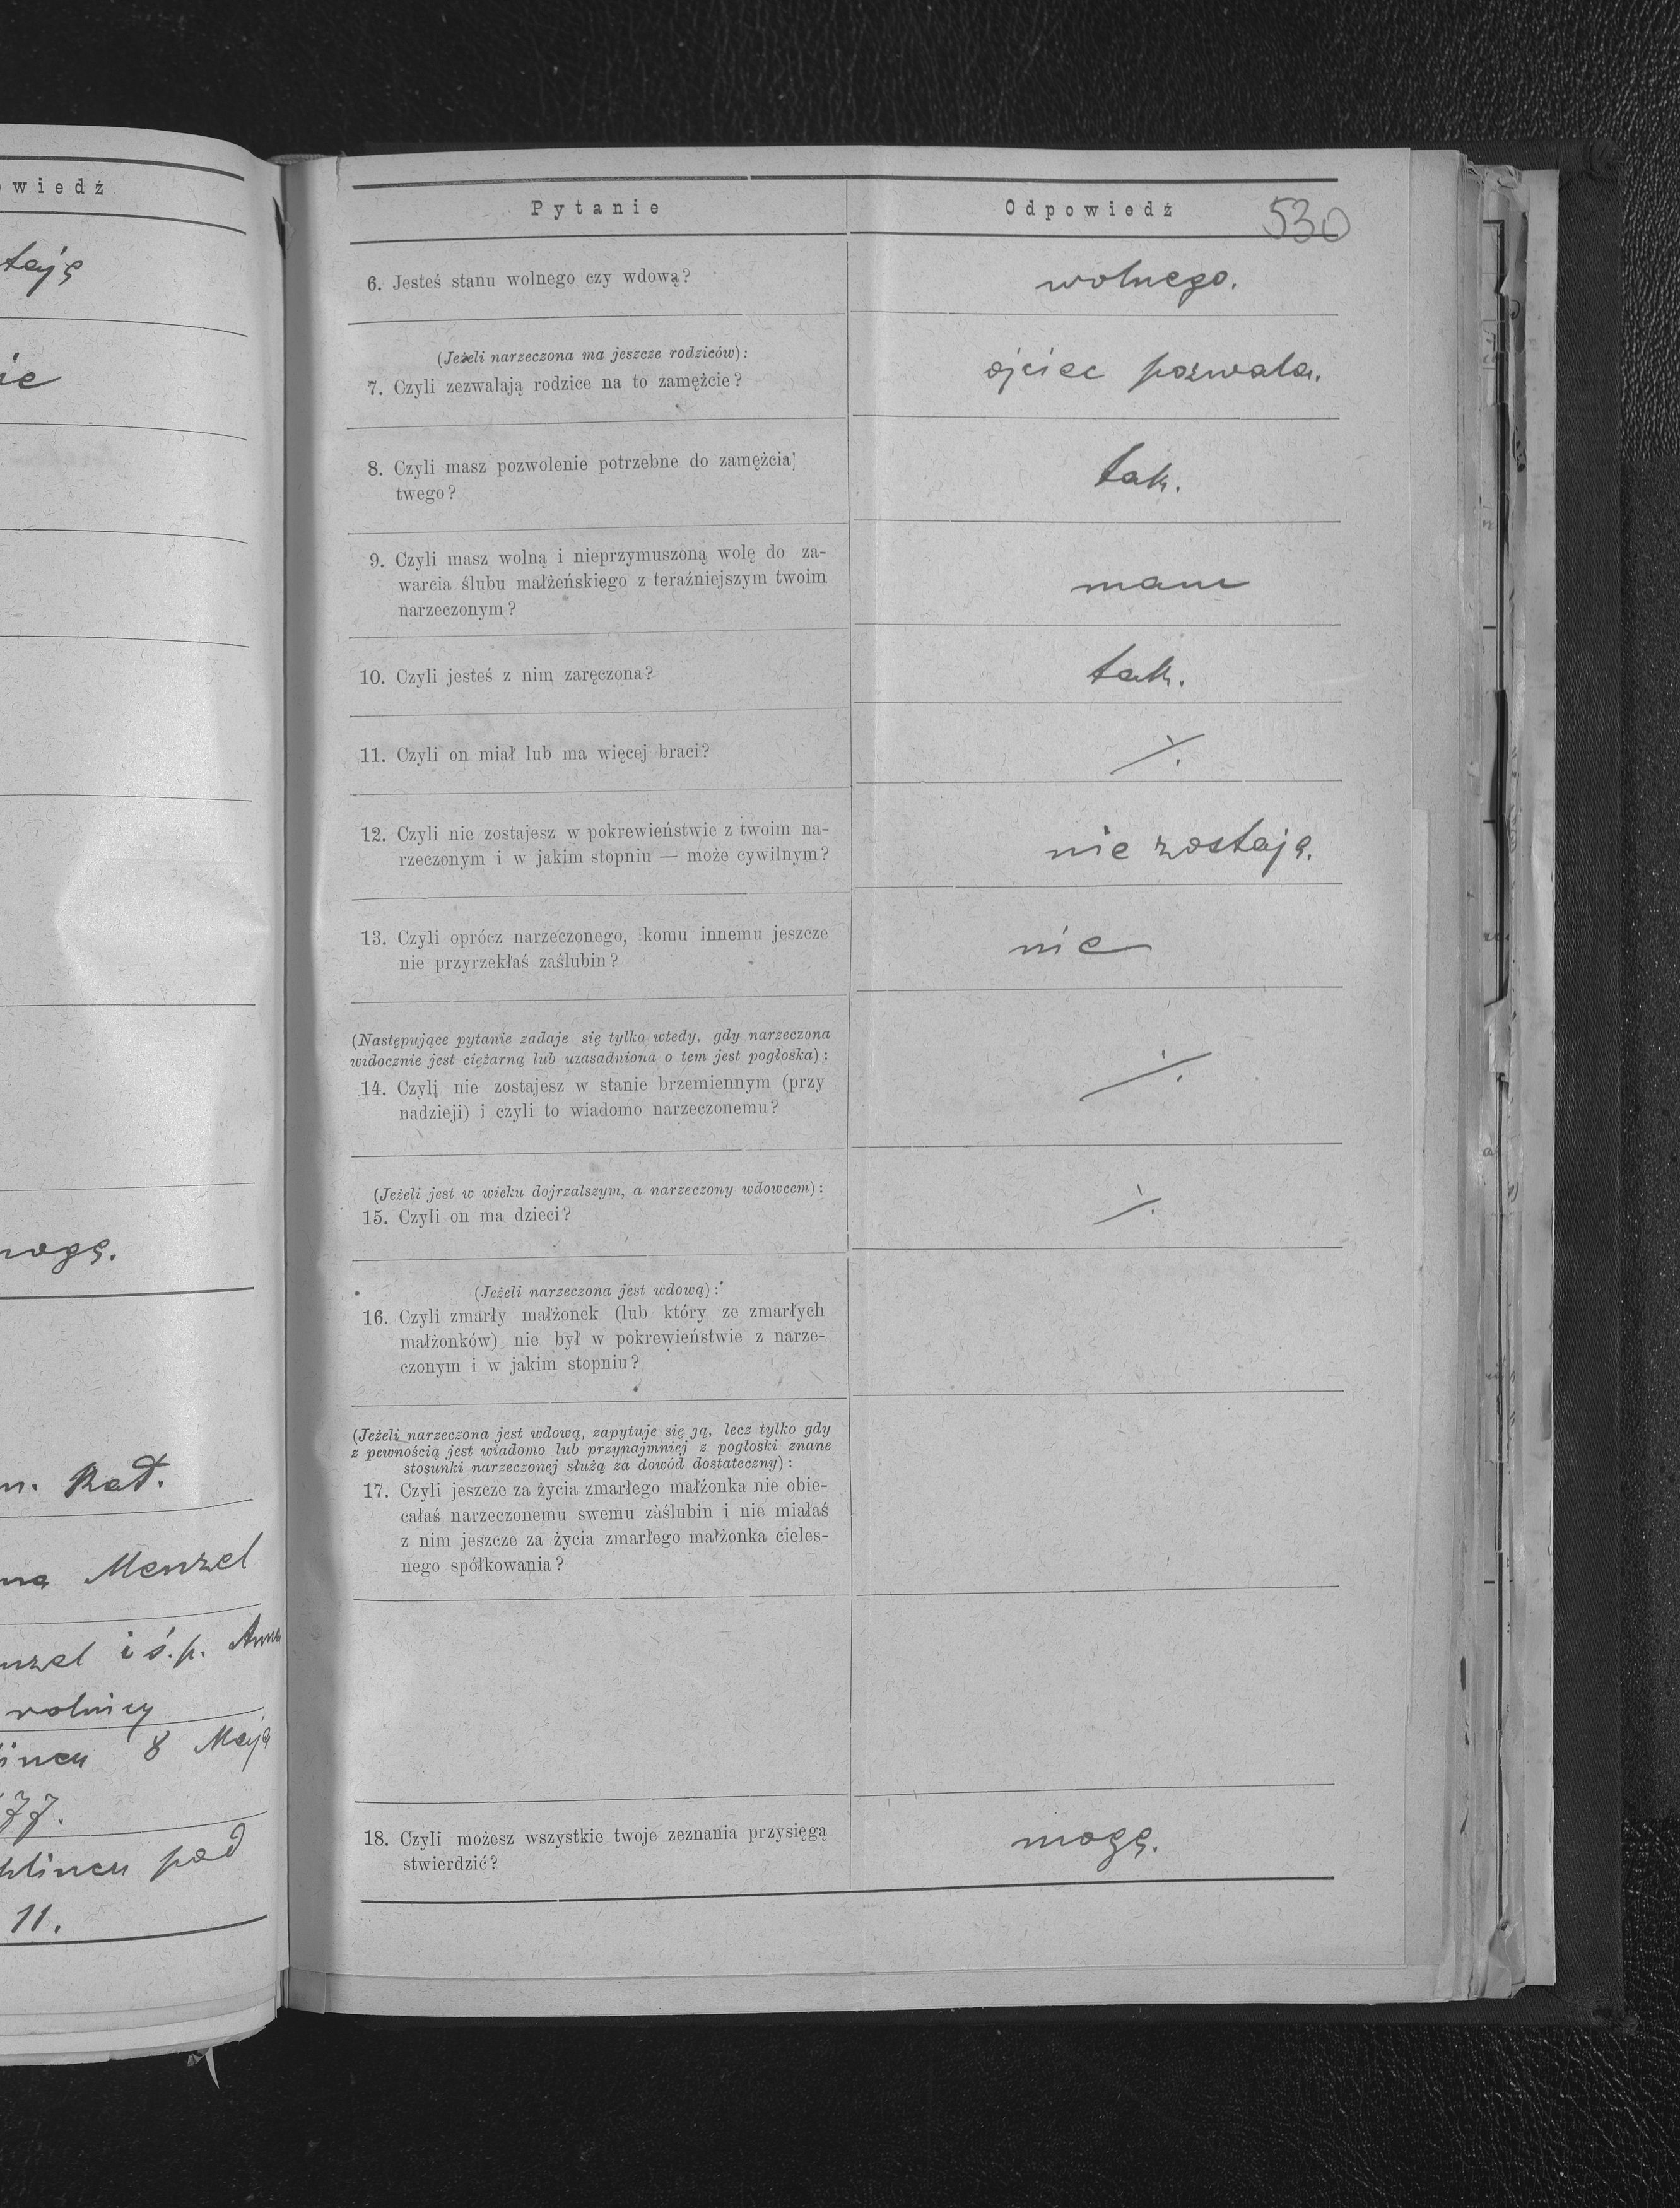 wiedź
tają
ie
mogę.
n. Kat.
na Menzel
nzel i ś. p. Anna
rolnicy
8 Maja
77.
pod
11.
Pytanie
Odpowiedź
530
6. Jesteś stanu wolnego czy wdową?
wolnego.
(Jeżeli narzeczona ma jeszcze rodziców):
7. Czyli zezwalają rodzice na to zamężcie?
ojciec pozwala.
8. Czyli masz pozwolenie potrzebne do zamężcia
twego?
tak.
9. Czyli masz wolną i nieprzymuszoną wolę do za-
warcia ślubu małżeńskiego z teraźniejszym twoim
narzeczonym?
mam
10. Czyli jesteś z nim zaręczona?
tak.
11. Czyli on miał lub ma więcej braci?
12. Czyli nie zostajesz w pokrewieństwie z twoim na-
rzeczonym i w jakim stopniu — może cywilnym?
nie zostaję.
13. Czyli oprócz narzeczonego, komu innemu jeszcze
nie przyrzekłaś zaślubin?
nie
(Następujące pytanie zadaje się tylko wtedy, gdy narzeczona
widocznie jest ciężarną lub uzasadniona o tem jest pogłoska):
14. Czyli nie zostajesz w stanie brzemiennym (przy
nadzieji) i czyli to wiadomo narzeczonemu?
(Jeżeli jest w wieku dojrzalszym, a narzeczony wdowcem):
15. Czyli on ma dzieci?
(Jeżeli narzeczona jest wdową):
16. Czyli zmarły małżonek (lub który ze zmarłych
małżonków) nie był w pokrewieństwie z narze-
czonym i w jakim stopniu?
(Jeżeli narzeczona jest wdową, zapytuje się ją, lecz tylko gdy
z pewnością jest wiadomo lub przynajmniej z pogłoski znane
stosunki narzeczonej służą za dowód dostateczny):
17. Czyli jeszcze za życia zmarłego małżonka nie obie-
całaś narzeczonemu swemu zaślubin i nie miałaś
z nim jeszcze za życia zmarłego małżonka cieles-
nego spółkowania?
18. Czyli możesz wszystkie twoje zeznania przysięgą
stwierdzić?
mogę.